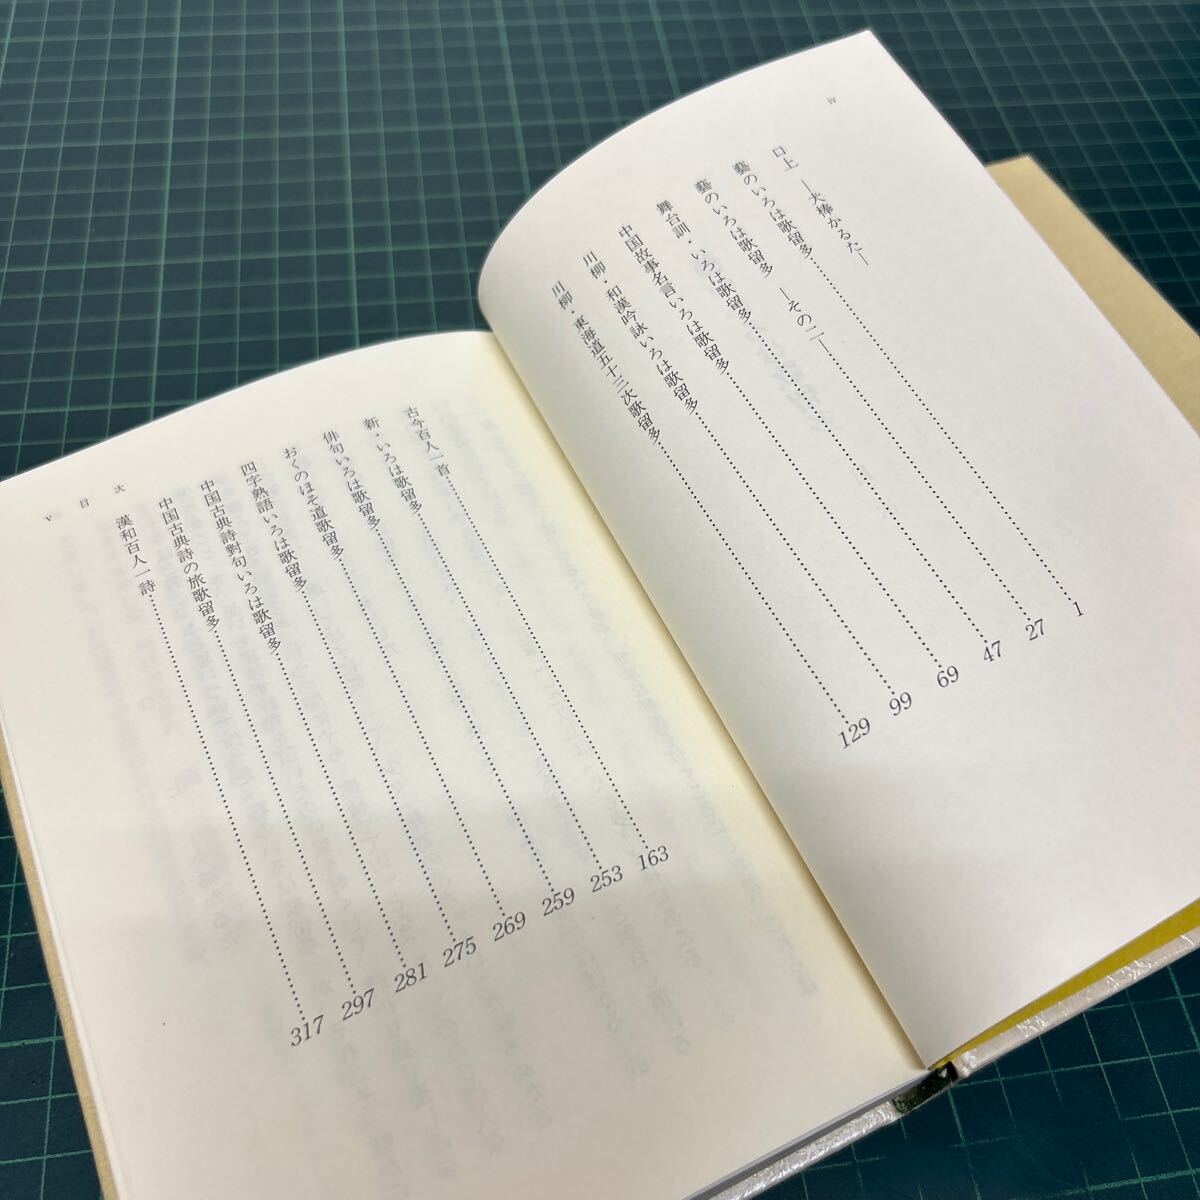 iv
口上 ―犬棒かるた―
藝のいろは歌留多……1
藝のいろは歌留多 ―その二―……27
舞台訓・いろは歌留多……47
中国故事名言いろは歌留多……69
川柳・和漢吟詠いろは歌留多……99
川柳・東海道五十三次歌留多……129
古今百人一首……163
新・いろは歌留多……253
俳句いろは歌留多……259
おくのほそ道歌留多……269
四字熟語いろは歌留多……275
中国古典詩對句いろは歌留多……281
中国古典詩の旅歌留多……297
漢和百人一詩……317
v 目次